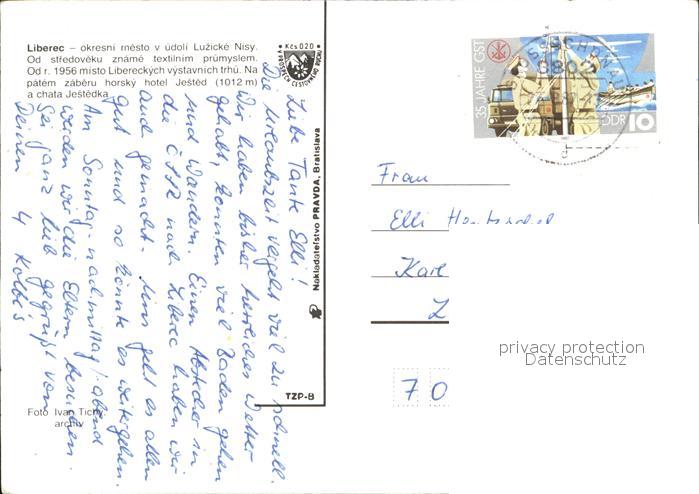 Liberec – okresní město v údolí Lužické Nisy.
Od středověku známé textilním průmyslem.
Od r. 1956 místo Libereckých výstavních trhů. Na
pátém záběru horský hotel Ještěd (1012 m)
a chata Ještědka
Kčs 0,20
Liebe Tante Elli!
Die Urlaubszeit vergeht viel zu schnell.
Wir haben bisher herrliches Wetter
gehabt, konnten viel Baden gehen
und Wandern. Einen Abstecher in
die ČSSR nach Liberec haben wir
auch gemacht. Uns geht es allen
gut und so könnte es weitergehen.
Am Sonntag-nachmittag/abend
werden wir die Eltern besuchen.
Sei ganz lieb gegrüßt von
Deinen 4 Kolbes
Foto Ivan Tichý
archiv
Nakladateľstvo PRAVDA, Bratislava
TZP-8
35 JAHRE GST
DDR 10
Frau
Elli
Karl
70
privacy protection
Datenschutz